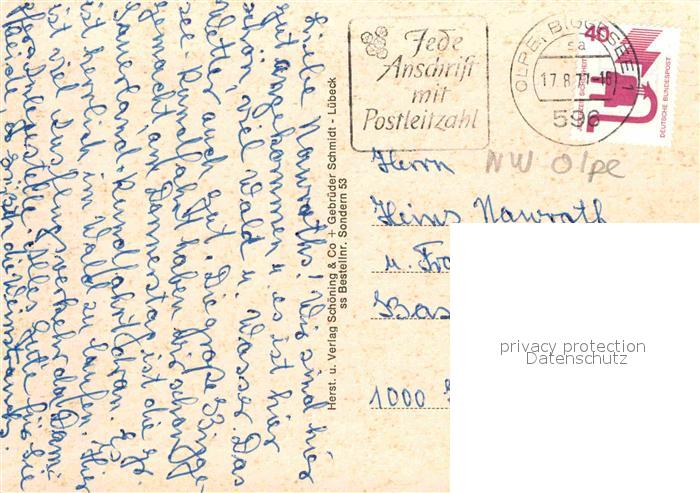 Liebe Nawraths! Wir sind hier
gut angekommen u. es ist hier
schön viel Wald u. Wasser. Das
Wetter auch gut. Die große Bigge-
rundfahrt haben wir schon
am Donnerstag ist die gr.
Sauerland-Rundfahrt dran. Es
ist herrlich im Wald zu laufen. Hier
ist viel Ausflugsverkehr da Damit
Alles Gute für Sie
Herst. u. Verlag Schöning & Co + Gebrüder Schmidt - Lübeck
ss Bestellnr. Sondern 53
Jede
Anschrift
mit
Postleitzahl
OLPE, BIGGESEE 1
sa
17.8.77-18
596
40
DEUTSCHE BUNDESPOST
NW Olpe
Herrn
Heinz Nawrath
u. Fr
Bas
1000
privacy protection
Datenschutz